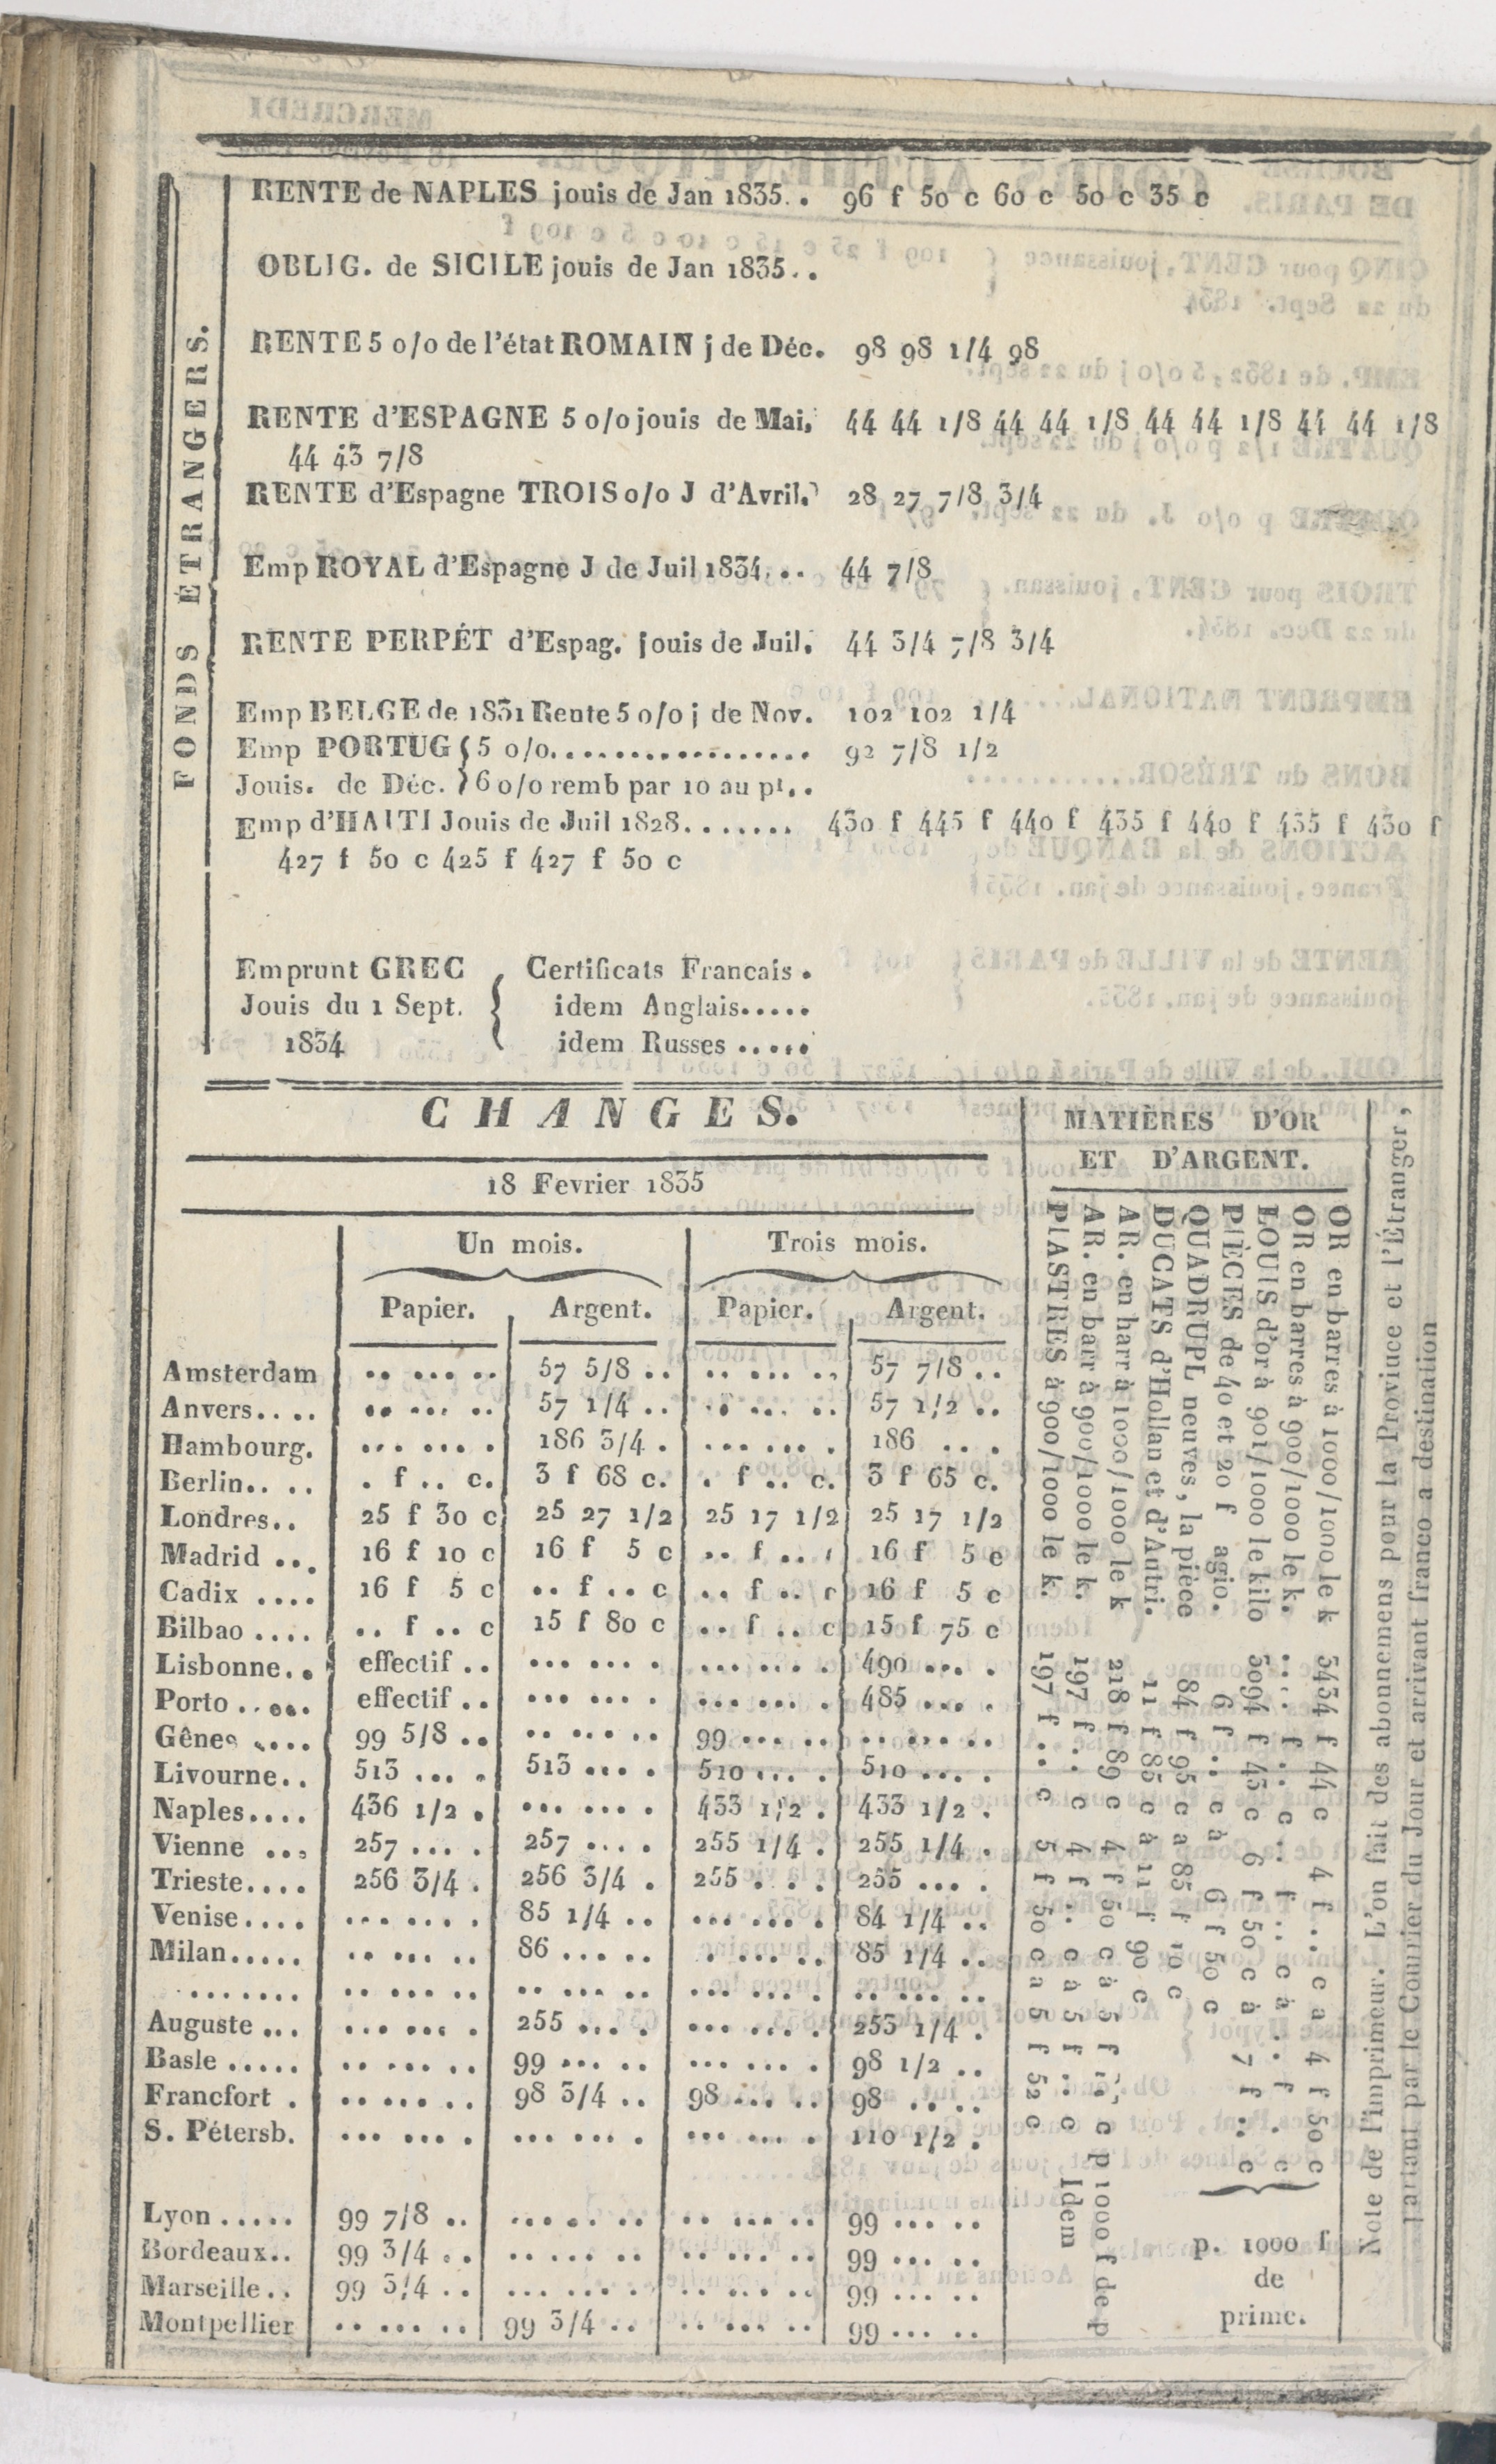 FONDS ÉTRANGERS.
RENTE de NAPLES jouis de Jan 1835.. 96 f 50 c 60 c 50 c 35 c
OBLIG. de SICILE jouis de Jan 1835..
RENTE 5 o/o de l'état ROMAIN j de Déc. 98 98 1/4 98
RENTE d'ESPAGNE 5 o/o jouis de Mai. 44 44 1/8 44 44 1/8 44 44 1/8 44 44 1/8
44 43 7/8
RENTE d'Espagne TROIS o/o J d'Avril. 28 27 7/8 3/4
Emp ROYAL d'Espagne J de Juil 1834... 44 7/8
RENTE PERPÉT d'Espag. jouis de Juil. 44 3/4 7/8 3/4
Emp BELGE de 1831 Rente 5 o/o j de Nov. 102 102 1/4
Emp PORTUG { 5 o/o................. 92 7/8 1/2
Jouis. de Déc. } 6 o/o remb par 10 au pt..
Emp d'HAITI Jouis de Juil 1828....... 430 f 445 f 440 f 435 f 440 f 435 f 430 f
427 f 50 c 425 f 427 f 50 c
Emprunt GREC { Certificats Francais.
Jouis du 1 Sept. idem Anglais.....
1834 idem Russes .....
CHANGES.
18 Fevrier 1835
Un mois. Trois mois.
Papier. Argent. Papier. Argent.
Amsterdam .. ... .. 57 5/8 .. .. ... .. 57 7/8 ..
Anvers.... .. ... .. 57 1/4 .. .. ... .. 57 1/2 ..
Hambourg. ... ... . 186 3/4 . ... ... . 186 ... .
Berlin.. .. . f .. c. 3 f 68 c. . f .. c. 3 f 65 c.
Londres.. 25 f 30 c 25 27 1/2 25 17 1/2 25 17 1/2
Madrid ... 16 f 10 c 16 f 5 c .. f .. 16 f 5 c
Cadix .... 16 f 5 c .. f .. c .. f .. c 16 f 5 c
Bilbao .... .. f .. c 15 f 80 c .. f .. c 15 f 75 c
Lisbonne.. effectif .. ... ... . ... ... . 490 ... .
Porto ..... effectif .. ... ... . ... ... . 485 ... .
Gênes .... 99 5/8 .. .. ... .. 99 ... .. .. ... ..
Livourne.. 513 ... . 513 ... . 510 ... . 510 ... .
Naples.... 436 1/2 . ... ... . 433 1/2 . 433 1/2 .
Vienne ... 257 ... . 257 ... . 255 1/4 . 255 1/4 .
Trieste.... 256 3/4 . 256 3/4 . 255 ... . 255 ... .
Venise.... ... ... . 85 1/4 .. ... ... . 84 1/4 ..
Milan..... .. ... .. 86 ... .. . ... .. 85 1/4 ..
....... .. ... .. .. ... .. ... ... . .. ... ..
Auguste ... ... ... . 255 ... . ... ... . 253 1/4 .
Basle ..... .. ... .. 99 ... .. ... ... . 98 1/2 ..
Francfort . .. ... .. 98 3/4 .. 98 ... .. 98 .. ..
S. Pétersb. ... ... . ... ... . ... ... . 110 1/2 .
Lyon ..... 99 7/8 .. ... ... .. .. ... .. 99 ... ..
Bordeaux.. 99 3/4 .. .. ... .. .. ... .. 99 ... ..
Marseille.. 99 3/4 .. ... ... .. .. ... .. 99 ... ..
Montpellier .. ... .. 99 3/4 .. .. ... .. 99 ... ..
MATIÈRES D'OR
ET D'ARGENT.
OR en barres à 1000/1000 le k 3434 f 44 c 4 f .. c a 4 f 50 c
OR en barres à 900/1000 le k. ... f .. c . f .. c à . f . c
LOUIS d'or à 901/1000 le kilo 3094 f 43 c 6 f 50 c à 7 f .. c
PIÈCES de 40 et 20 f agio. 6 f .. c à 6 f 50 c
QUADRUPL neuves, la pièce 84 f 95 c a 85 f 10 c
DUCATS d'Hollan et d'Autri. 11 f 85 c à 11 f 90 c
AR. en barr à 1000/1000 le k 218 f 89 c 4 f 50 c à 5 f .. c p 1000 f de p
AR. en barr à 900/1000 le k. 197 f .. c 4 f .. c à 5 f .. c Idem
PIASTRES à 900/1000 le k. 197 f .. c 5 f 50 c a 5 f 52 c
p. 1000 f
de
prime.
Note de l'imprimeur. L'on fait des abonnemens pour la Province et l'Étranger,
partant par le Courrier du Jour et arrivant franco a destination